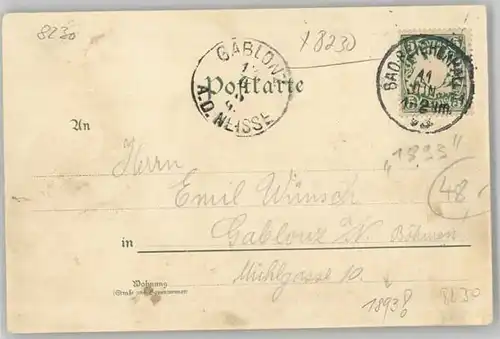 8230
18230
GABLONZ
A.D. NEISSE
Postkarte
BAD REICHENHALL
11
JUN
An
Herrn
Emil Wünsch
"1893"
48
in
Gablonz a/N. Böhmen
Mühlgasse 10.
Wohnung
(Straße und Hausnummer)
1893?
8230